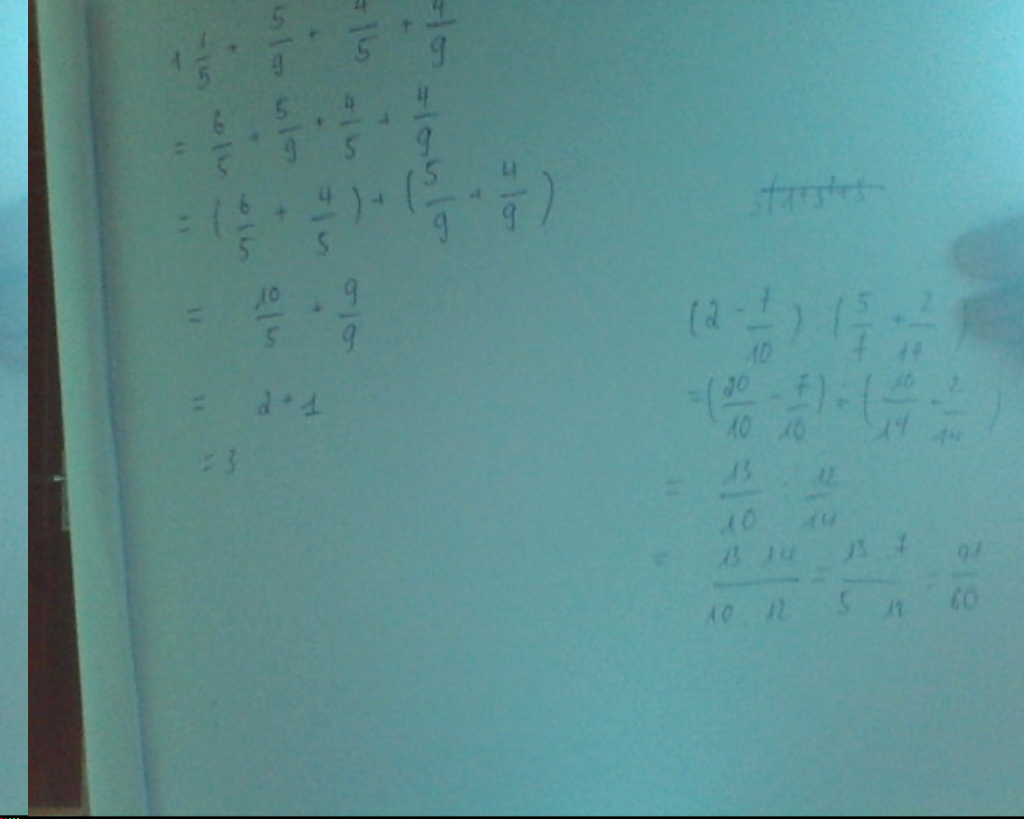 1 1/5 + 5/9 + 4/5 + 4/9
= 6/5 + 5/9 + 4/5 + 4/9
= (6/5 + 4/5) + (5/9 + 4/9)
= 10/5 + 9/9
= 2 + 1
= 3
(2 - 7/10) : (5/7 + 2/14)
= (20/10 - 7/10) : (10/14 + 2/14)
= 13/10 : 12/14
= 13 . 14/10 . 12 = 13 . 7/5 . 12 = 91/60